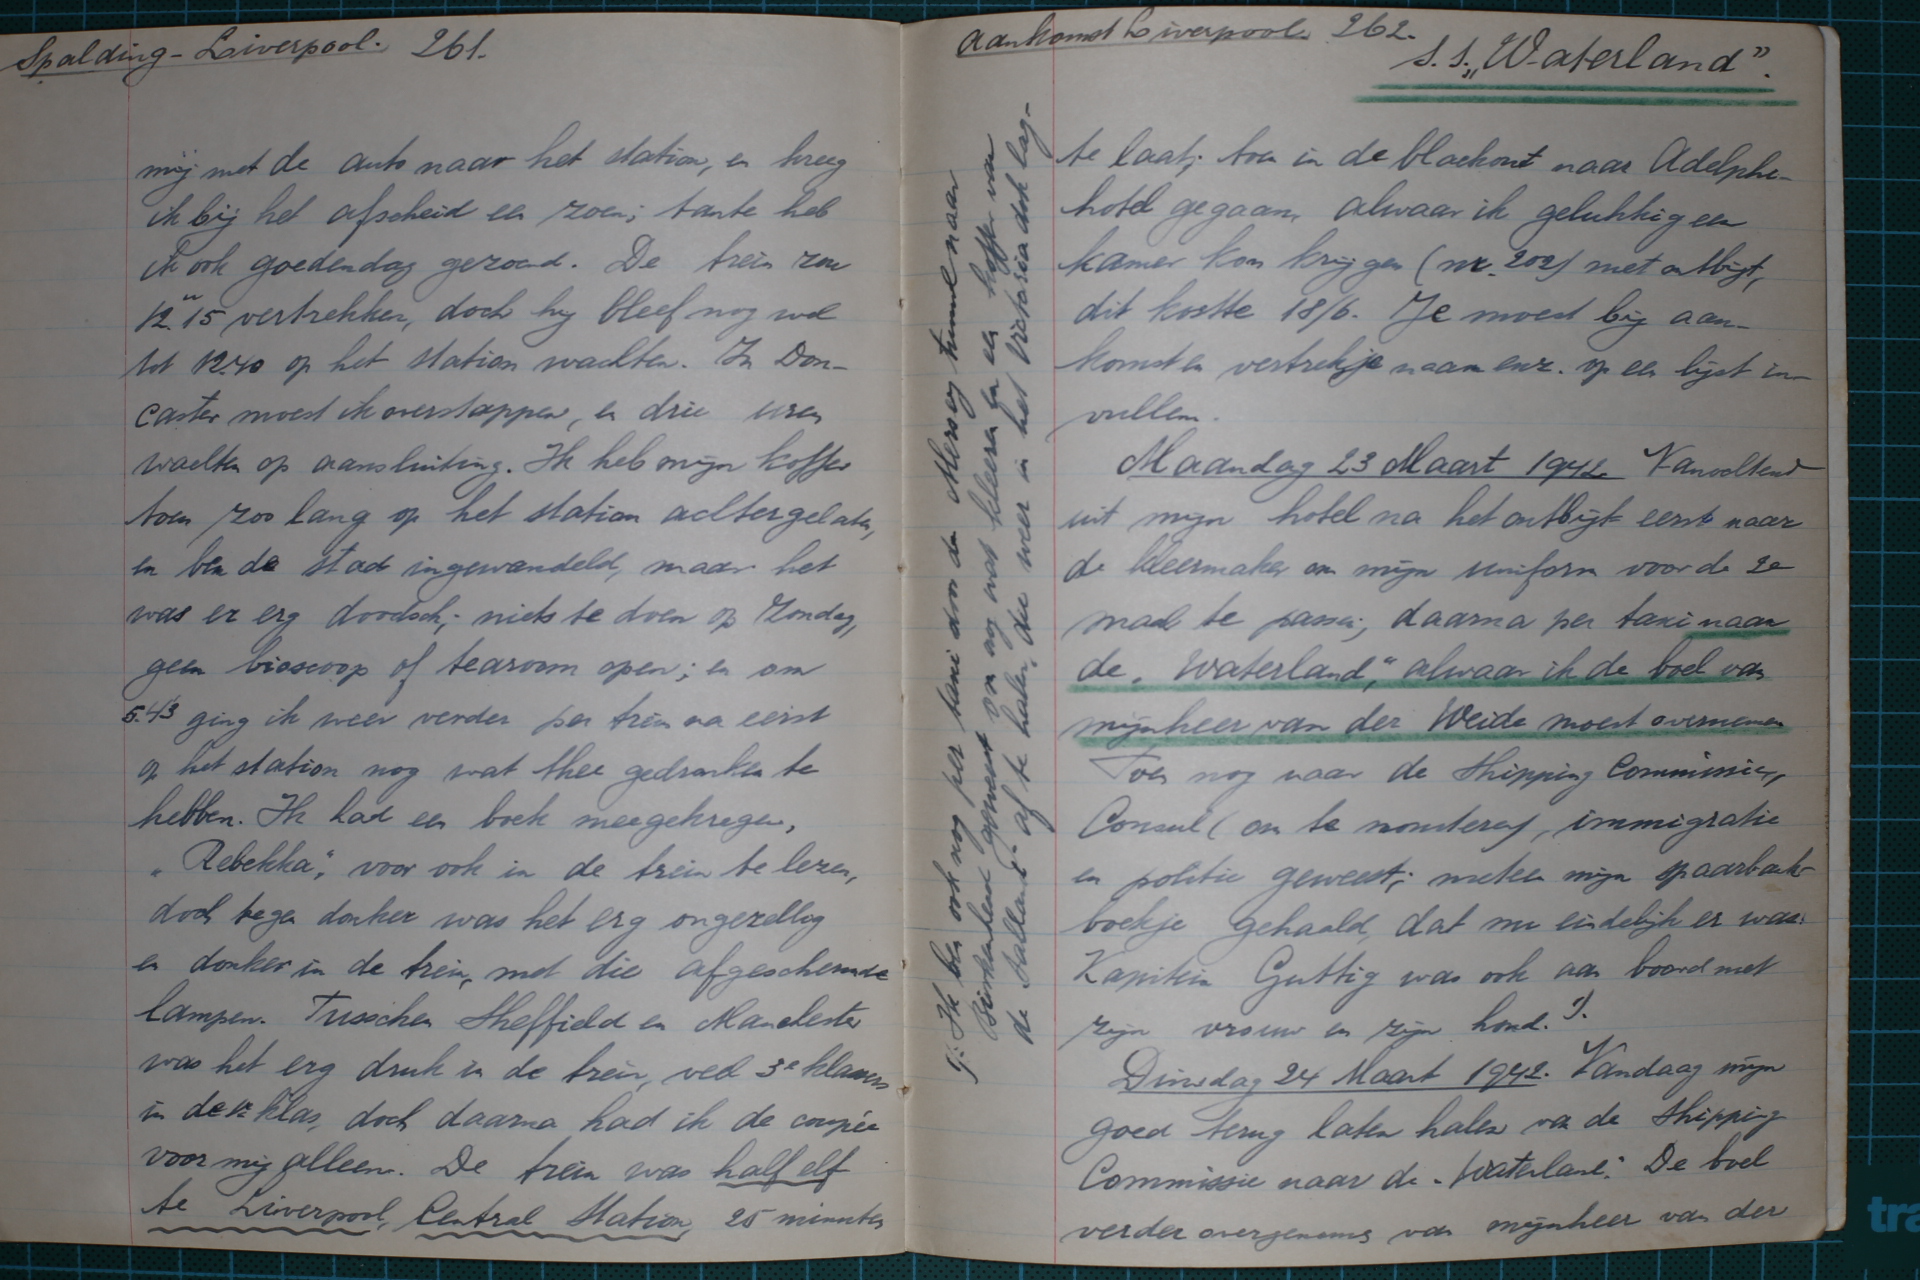 Spalding - Liverpool. 261.
mij met de auto naar het station, en kreeg
ik bij het afscheid een zoen; tante heb
ik ook goedendag gezoend. De trein zou
12.15 vertrekken, doch hij bleef nog wel
tot 12.40 op het station wachten. In Don-
caster moest ik overstappen, en drie uren
wachten op aansluiting. Ik heb mijn koffer
toen zoo lang op het station achtergelaten,
en ben de stad ingewandeld, maar het
was er erg doodsch; niets te doen op Zondag,
geen bioscoop of tearoom open; en om
5.43 ging ik weer verder per trein na eerst
op het station nog wat thee gedronken te
hebben. Ik had een boek meegekregen,
„Rebekka", voor ook in de trein te lezen,
doch tegen donker was het erg ongezellig
en donker in de trein, met die afgeschermde
lampen. Tusschen Sheffield en Manchester
was het erg druk in de trein, veel 3e klassers
in de 1e klas, doch daarna had ik de coupée
voor mij alleen. De trein was half elf
te Liverpool, Central Station, 25 minuten
Aankomst Liverpool. 262.
s.s. „Waterland".
te laat; toen in de blackout naar Adelphi-
hotel gegaan, alwaar ik gelukkig een
kamer kon krijgen (nr. 202) met ontbijt,
dit kostte 18/6. Je moest bij aan-
komst en vertrek je naam enz. op een lijst in-
vullen.
Maandag 23 Maart 1942. Vanochtend
uit mijn hotel na het ontbijt eerst naar
de kleermaker om mijn uniform voor de 2e
maal te passen; daarna per taxi naar
de „Waterland", alwaar ik de boel van
mijnheer van der Weide moest overnemen
Toen nog naar de Shipping Commissie,
Consul (om te monsteren), immigratie
en politie geweest; meteen mijn spaarbank-
boekje gehaald, dat nu eindelijk er was.
Kapitein Guttig was ook aan boord met
zijn vrouw en zijn hond. 1).
Dinsdag 24 Maart 1942. Vandaag mijn
goed terug laten halen van de Shipping
Commissie naar de „Waterland". De boel
verder overgenomen van mijnheer van der
1): Ik ben ook nog per taxi door de Mersey tunnel naar
Birkenhead geweest om nog wat kleeren en een koffer van
de „Salland" af te halen, die weer in het Victoria dok lag.
tra